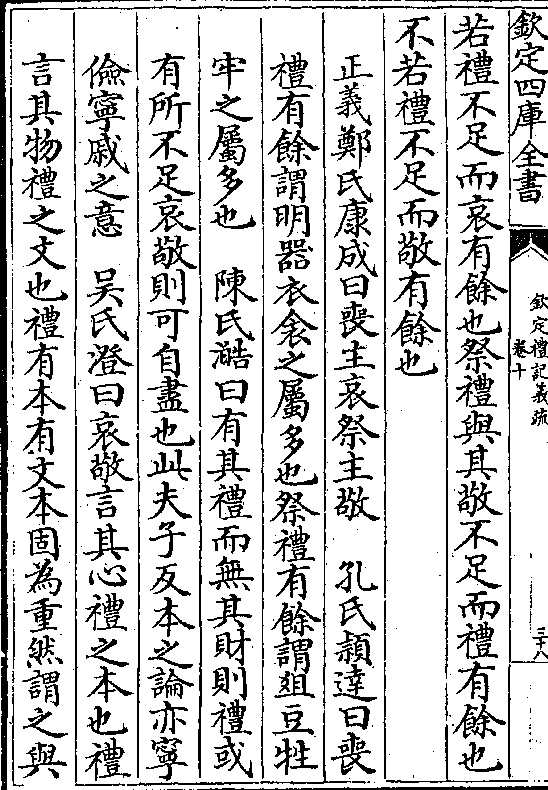 欽定四庫全書
欽定禮記義疏
卷十
三十八
若禮不足而哀有餘也祭禮與其敬不足而禮有餘也
不若禮不足而敬有餘也
正義鄭氏康成曰喪主哀祭主敬　孔氏穎達曰喪
禮有餘謂明器衣衾之屬多也祭禮有餘謂俎豆牲
牢之屬多也　陳氏澔曰有其禮而無其財則禮或
有所不足哀敬則可自盡也此夫子反本之論亦寧
儉寧戚之意　吳氏澄曰哀敬言其心禮之本也禮
言其物禮之文也禮有本有文本固為重然謂之與